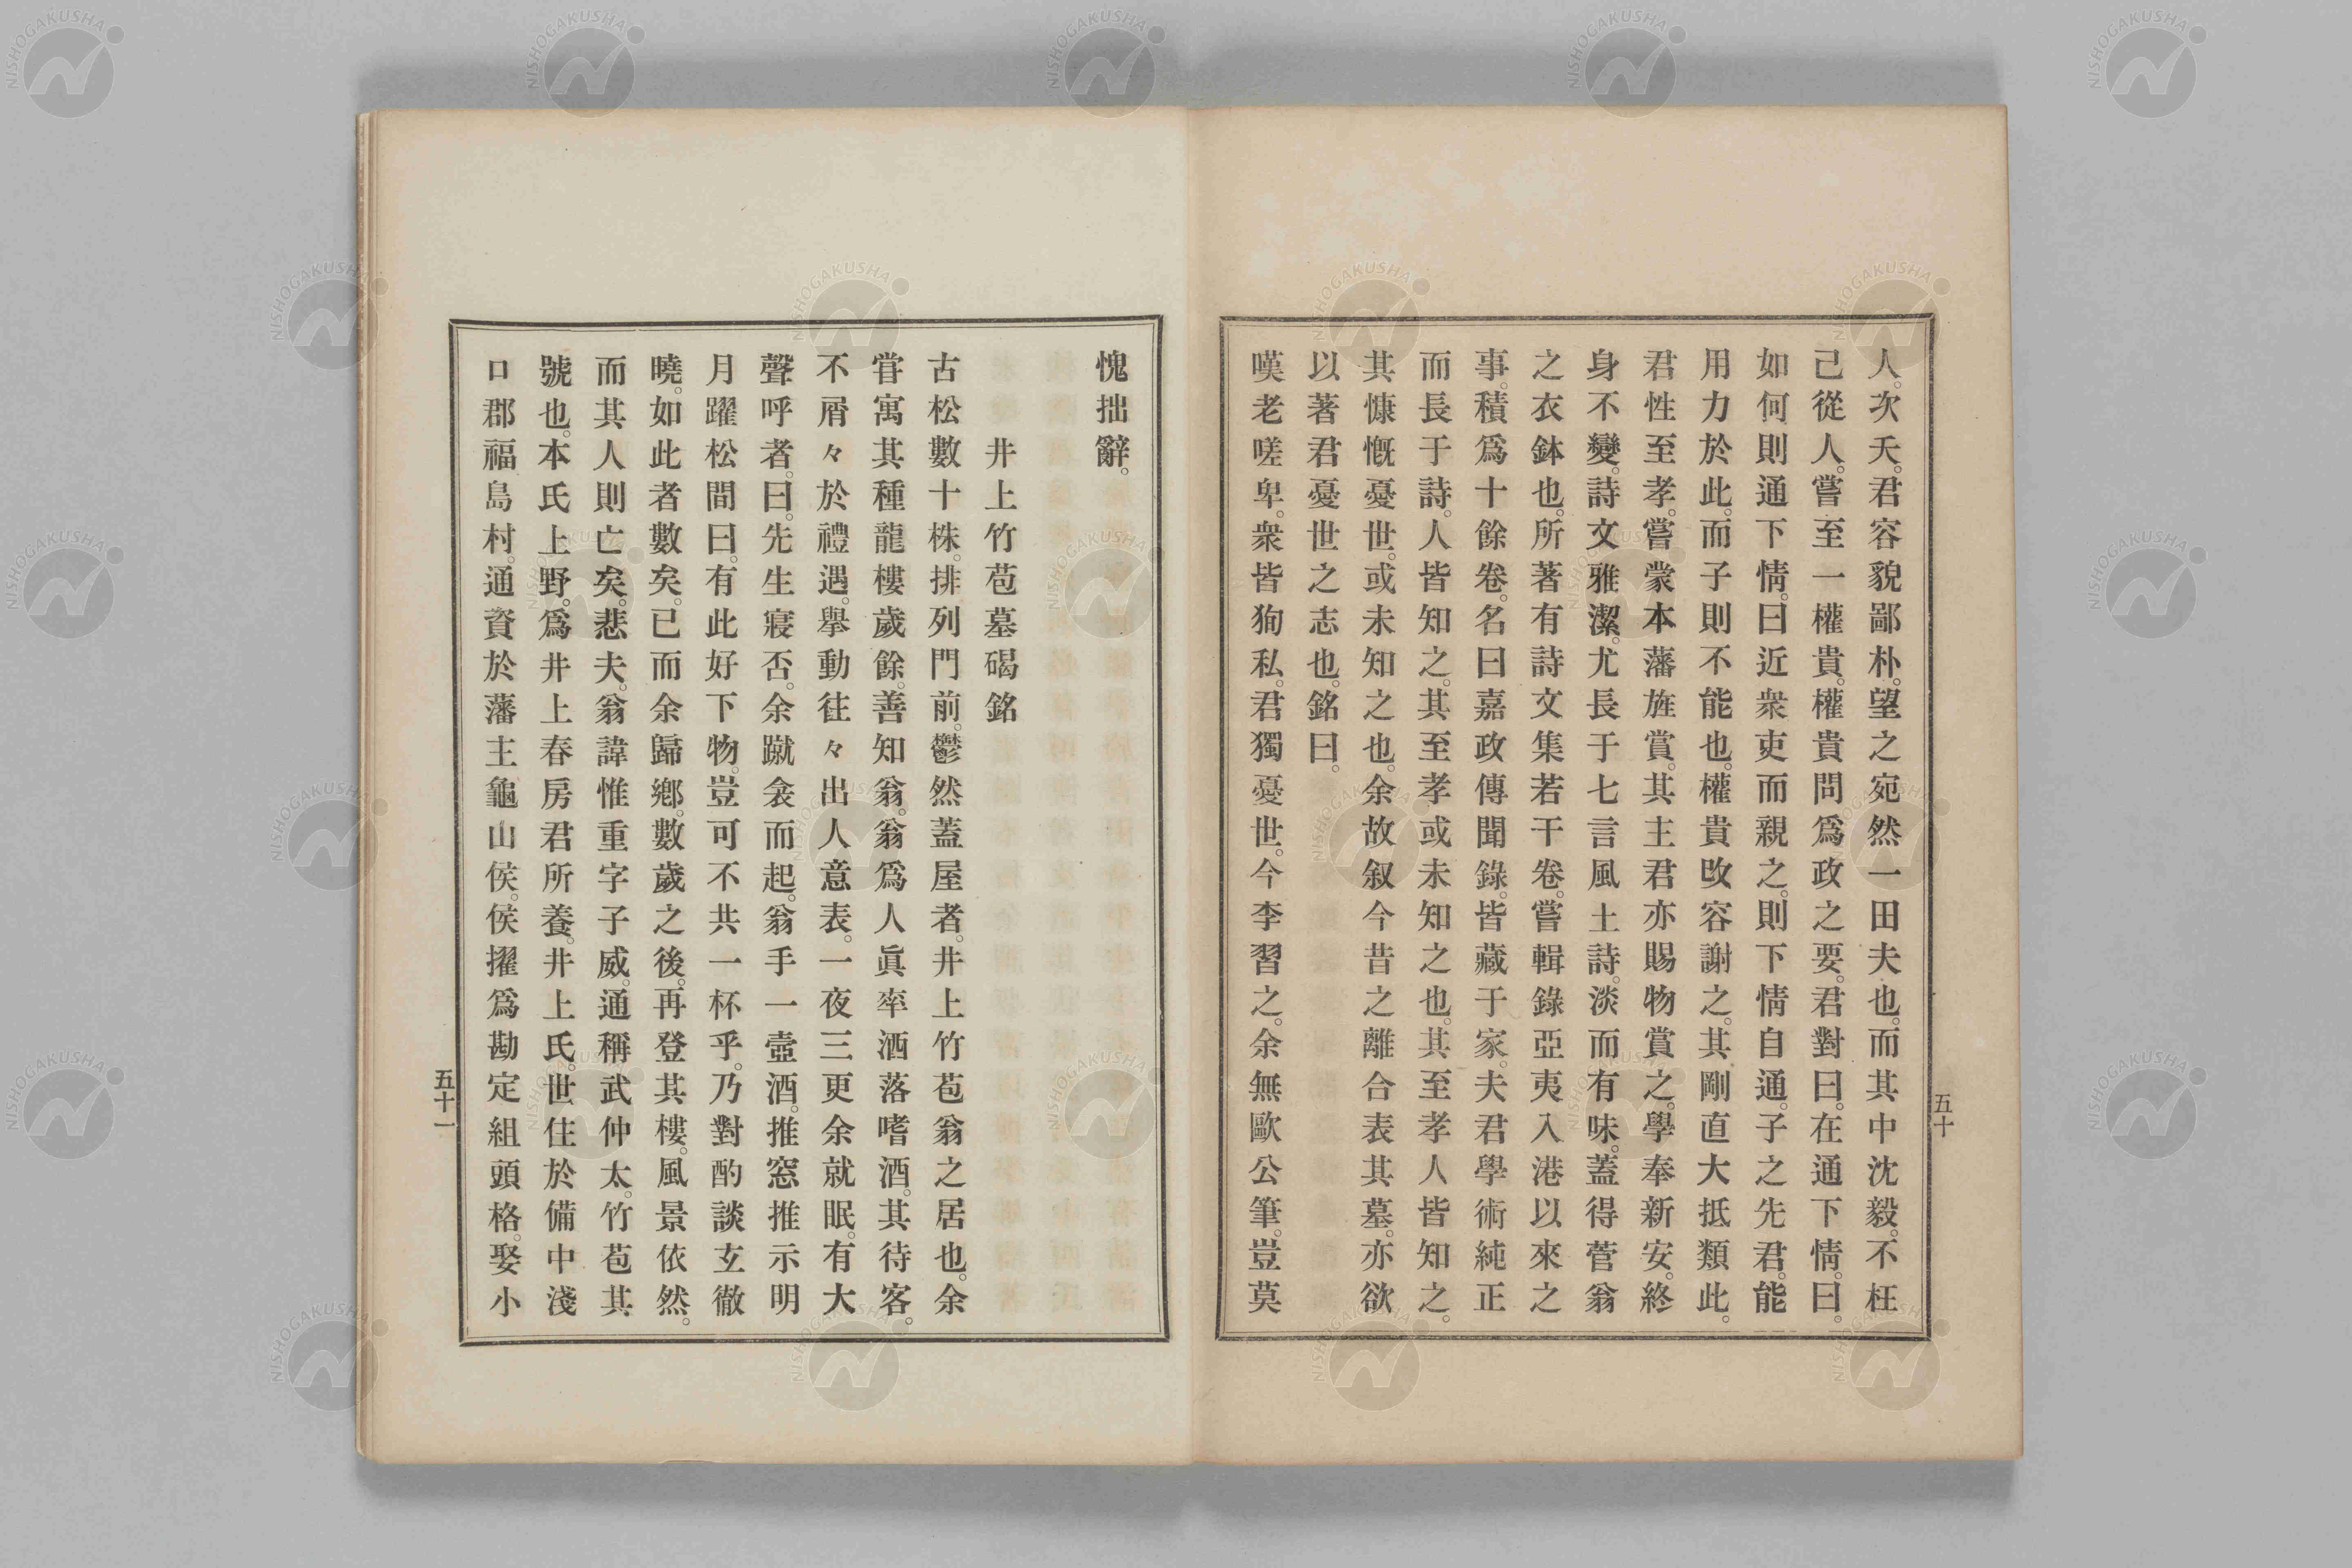 人。次夭。君容貌鄙朴。望之宛然一田夫也。而其中沈毅。不枉
己從人。嘗至一權貴。權貴問爲政之要。君對曰。在通下情。曰。
如何則通下情。曰近衆吏而親之。則下情自通。子之先君。能
用力於此。而子則不能也。權貴改容謝之。其剛直大抵類此。
君性至孝。嘗蒙本藩旌賞。其主君亦賜物賞之。學奉新安。終
身不變。詩文雅潔。尤長于七言風土詩。淡而有味。蓋得菅翁
之衣鉢也。所著有詩文集若干卷。嘗輯錄亞夷入港以來之
事。積爲十餘卷。名曰嘉政傳聞錄。皆藏于家。夫君學術純正
而長于詩。人皆知之。其至孝或未知之也。其至孝人皆知之。
其慷慨憂世。或未知之也。余故叙今昔之離合表其墓。亦欲
以著君憂世之志也。銘曰。
嘆老嗟卑。衆皆狥私。君獨憂世。今李習之。余無歐公筆。豈莫
五十
愧拙辭。
井上竹苞墓碣銘
古松數十株。排列門前。鬱然蓋屋者。井上竹苞翁之居也。余
甞寓其種龍樓歲餘。善知翁。翁爲人眞率洒落嗜酒。其待客。
不屑々於禮遇。擧動往々出人意表。一夜三更余就眠。有大
聲呼者。曰。先生寢否。余蹴衾而起。翁手一壺酒。推窓推示明
月躍松間曰。有此好下物。豈可不共一杯乎。乃對酌談玄徹
曉。如此者數矣。已而余歸鄕。數歲之後。再登其樓。風景依然。
而其人則亡矣。悲夫。翁諱惟重字子威。通稱武仲太。竹苞其
號也。本氏上野。爲井上春房君所養。井上氏。世住於備中淺
口郡福島村。通資於藩主龜山侯。侯擢爲勘定組頭格。娶小
五十一